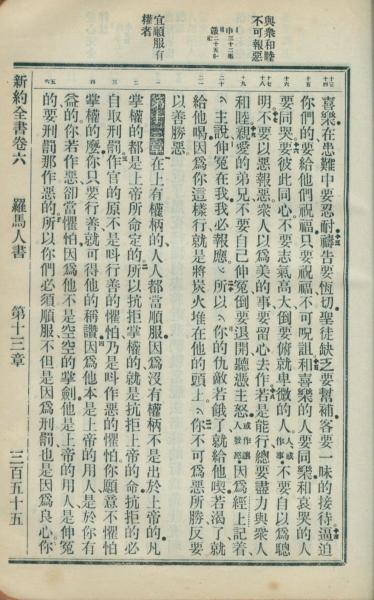 與衆和睦
不可報惡
喜樂在患難中要忍耐禱告要恆切聖徒缺乏要幫補客要一味的接待逼迫
你們的要給他們祝福只要祝福不可咒詛和喜樂的人要同樂和哀哭的人
要同哭要彼此同心不要志氣高大倒要俯就卑微的人或作事不要自以為聰
明不要以惡報惡衆人以為美的事要留心去作若是能行總要盡力與衆人
和睦親愛的弟兄不要自己伸冤倒要退開聽憑主怒或作讓人發怒因為經上記着
主說伸冤在我我必報應所以你的仇敵若餓了就給他喫若渴了就
給他喝因為你這樣行就是將炭火堆在他的頭上你不可為惡所勝反要
以善勝惡
宜順服有
權者
第十三章在上有權柄的人人都當順服因為沒有權柄不是出於上帝的凡
掌權的都是上帝所命定的所以抗拒掌權的就是抗拒上帝的命抗拒的必
自取刑罰作官的原不是呌行善的懼怕乃是呌作惡的懼怕你願意不懼怕
掌權的麼你只要行善就可得他的稱讚因為他本是上帝的用人是於你有
益的你若作惡卻當懼怕因為他不是空空的掌劍他是上帝的用人是伸冤
的要刑罰那作惡的所以你們必須順服不但是因為刑罰也是因為良心你
新約全書卷六 羅馬人書 第十三章 三百五十五